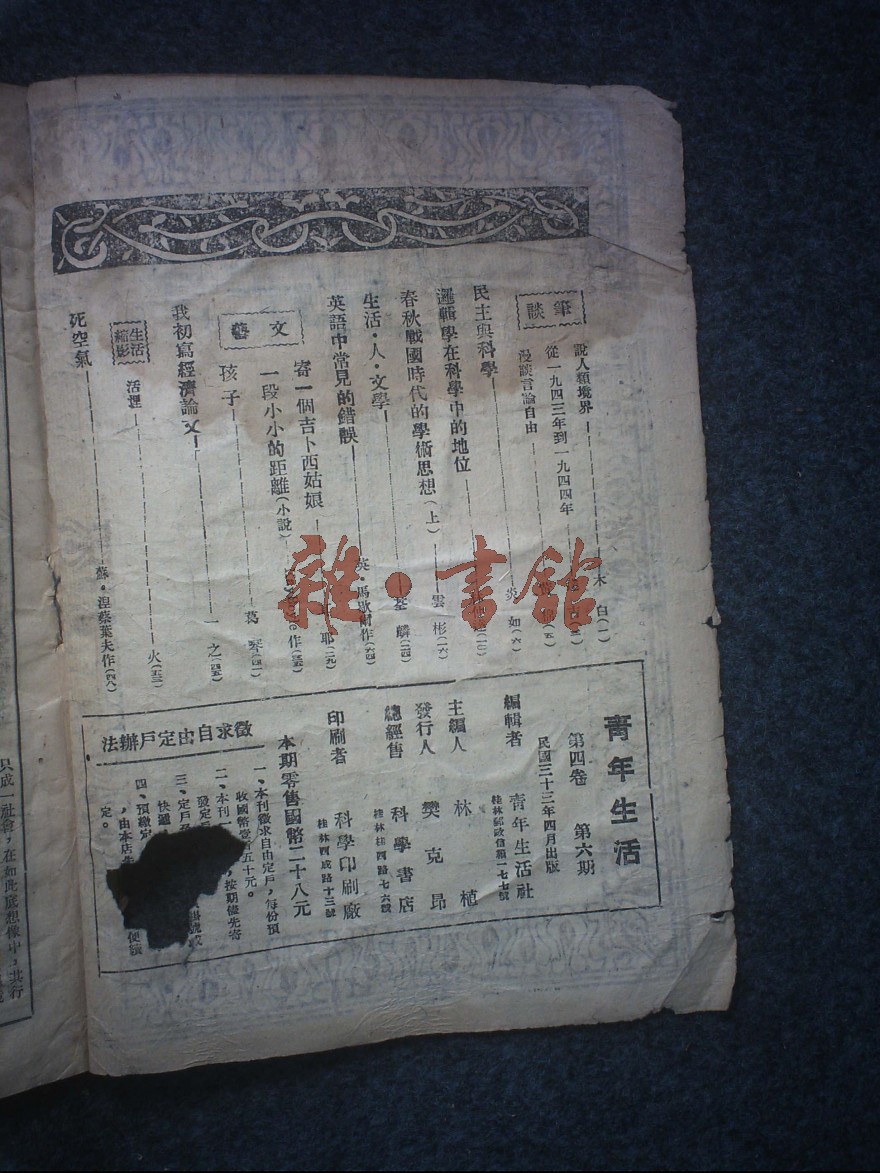 筆談
說人類境界 木白(一)
從一九四三年到一九四四年
漫談言論自由 (五)
民主與科學 炎如(六)
邏輯學在科學中的地位
春秋戰國時代的學術思想(上) 雲彬(一六)
生活·人·文學 荃麟(二四)
英語中常見的錯誤 英·馬歇爾作(六四)
文藝
寄一個吉卜西姑娘 耶(二九)
一段小小的距離(小說) 作(三五)
孩子 葛琴(四一)
我初寫經濟論文 一之(四五)
生活縮影
活捏 火(五三)
死空氣 蘇·涅蔡葉夫作(四八)
雜·書館
青年生活
第四卷 第六期
民國三十三年四月出版
編輯者 青年生活社
桂林郵政信箱一七七號
主編人 林植
發行人 樊克昂
總經售 科學書店
桂林桂西路七六號
印刷者 科學印刷廠
桂林西成路十三號
本期零售國幣二十八元
徵求自由定戶辦法
一、本刊徵求自由定戶,每份預
收國幣壹百五十元。
二、本刊 ,按期優先寄
發定
三、定戶 掛號或
快遞
四、預繳定 便續
,由本店
定。
只成一社會,在如此底想像中,其行